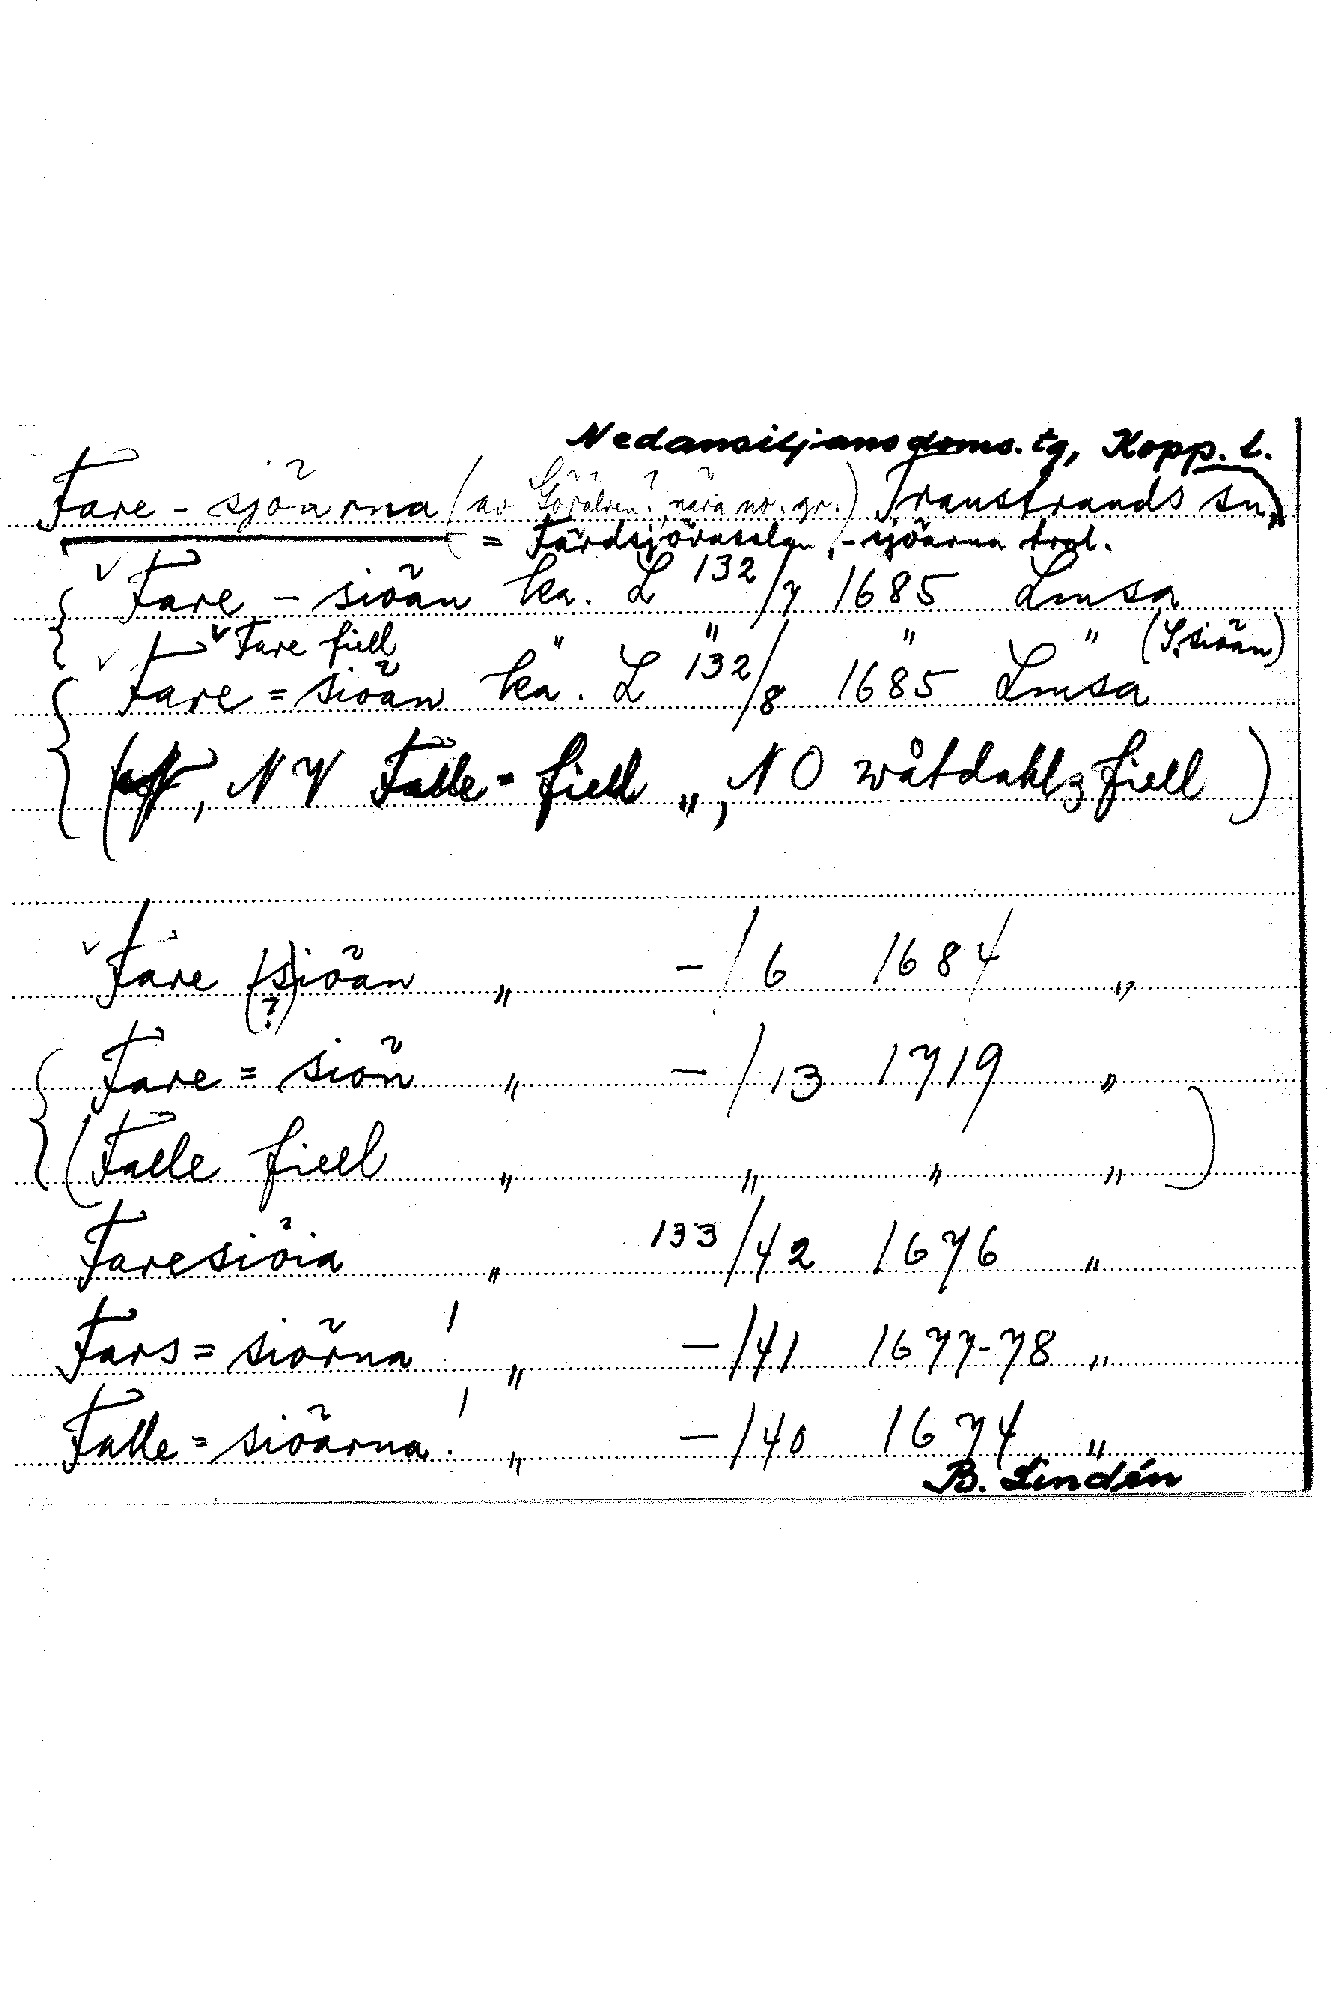 Nedansiljans doms. tg, Kopp. l.
Fare - sjöarna (av Görälven?, nära no. gr.) Transtrands sn
= Färdsjövasslan, -sjöarna trol.
Fare - siöän ka. L 132/7 1685 Lmsa
Fare fiell " " " " (S. siöän)
Fare = siöän ka. L 132/8 1685 Lmsa
, NV Falle = fiell „, NO wåtdahlz fiell )
Fare (s)iöän „ - / 6 1684 „
(?)
Fare = siön „ - / 13 1719 „
(Falle fiell „ „ „ „ )
Faresiöia „ 133/42 1676 „
Fars = siörna ! „ - /41 1677-78 „
Falle = siöarna ! „ - /40 1674 „
B. Lindén